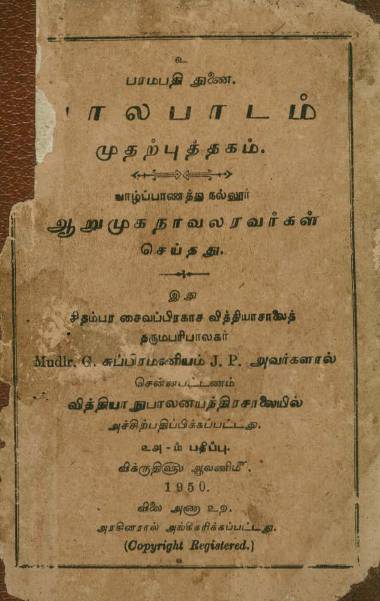 உ
பரமபதி துணை.
ாலபாடம்
முதற்புத்தகம்.
யாழ்ப்பாணத்து நல்லூர்
ஆறுமுகநாவலரவர்கள்
செய்தது.
இது
சிதம்பர சைவப்பிரகாச வித்தியாசாலைத்
தருமபரிபாலகர்
Mudlr. C. சுப்பிரமணியம் J. P. அவர்களால்
சென்னபட்டணம்
வித்தியாநுபாலனயந்திரசாலையில்
அச்சிற்பதிப்பிக்கப்பட்டது.
உஅ - ம் பதிப்பு.
விக்ருதி௵ ஆவணி௴.
1950.
விலை அணா உற.
அரசினரால் அங்கீகரிக்கப்பட்டது.
(Copyright Registered.)